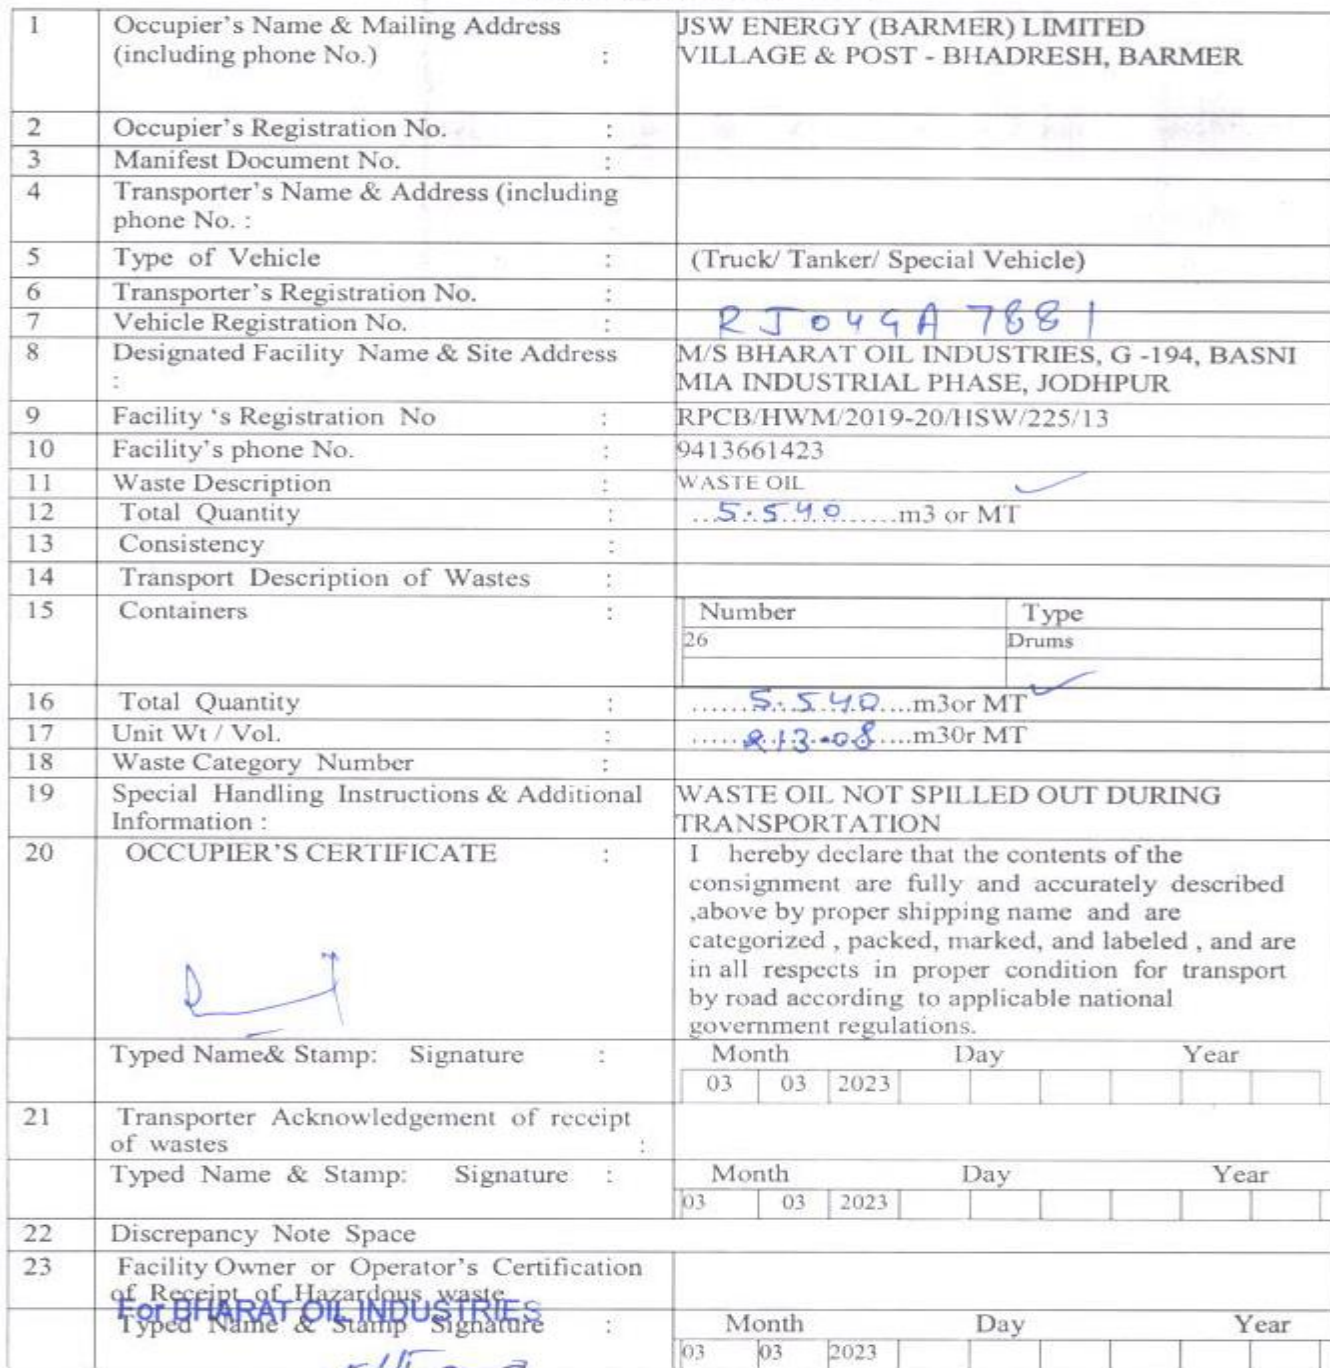 1 Occupier's Name & Mailing Address JSW ENERGY (BARMER) LIMITED
(including phone No.) : VILLAGE & POST - BHADRESH, BARMER
2 Occupier's Registration No. :
3 Manifest Document No. :
4 Transporter's Name & Address (including
phone No. :
5 Type of Vehicle : (Truck/ Tanker/ Special Vehicle)
6 Transporter's Registration No. :
7 Vehicle Registration No. : RJ04GA 7881
8 Designated Facility Name & Site Address M/S BHARAT OIL INDUSTRIES, G -194, BASNI
: MIA INDUSTRIAL PHASE, JODHPUR
9 Facility 's Registration No : RPCB/HWM/2019-20/HSW/225/13
10 Facility's phone No. : 9413661423
11 Waste Description : WASTE OIL
12 Total Quantity : ..5.540.......m3 or MT
13 Consistency :
14 Transport Description of Wastes :
15 Containers : Number Type
26 Drums
16 Total Quantity : ......5.540....m3or MT
17 Unit Wt / Vol. : .....213.08.....m30r MT
18 Waste Category Number :
19 Special Handling Instructions & Additional WASTE OIL NOT SPILLED OUT DURING
Information : TRANSPORTATION
20 OCCUPIER'S CERTIFICATE : I hereby declare that the contents of the
consignment are fully and accurately described
,above by proper shipping name and are
categorized , packed, marked, and labeled , and are
in all respects in proper condition for transport
by road according to applicable national
government regulations.
Typed Name& Stamp: Signature : Month Day Year
03 03 2023
21 Transporter Acknowledgement of receipt
of wastes :
Typed Name & Stamp: Signature : Month Day Year
03 03 2023
22 Discrepancy Note Space
23 Facility Owner or Operator's Certification
of Receipt of Hazardous waste
For BHARAT OIL INDUSTRIES
Typed Name & Stamp Signature : Month Day Year
03 03 2023